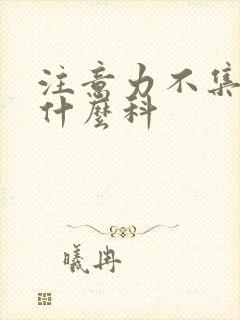 注意力不集
什麼科
曦冉